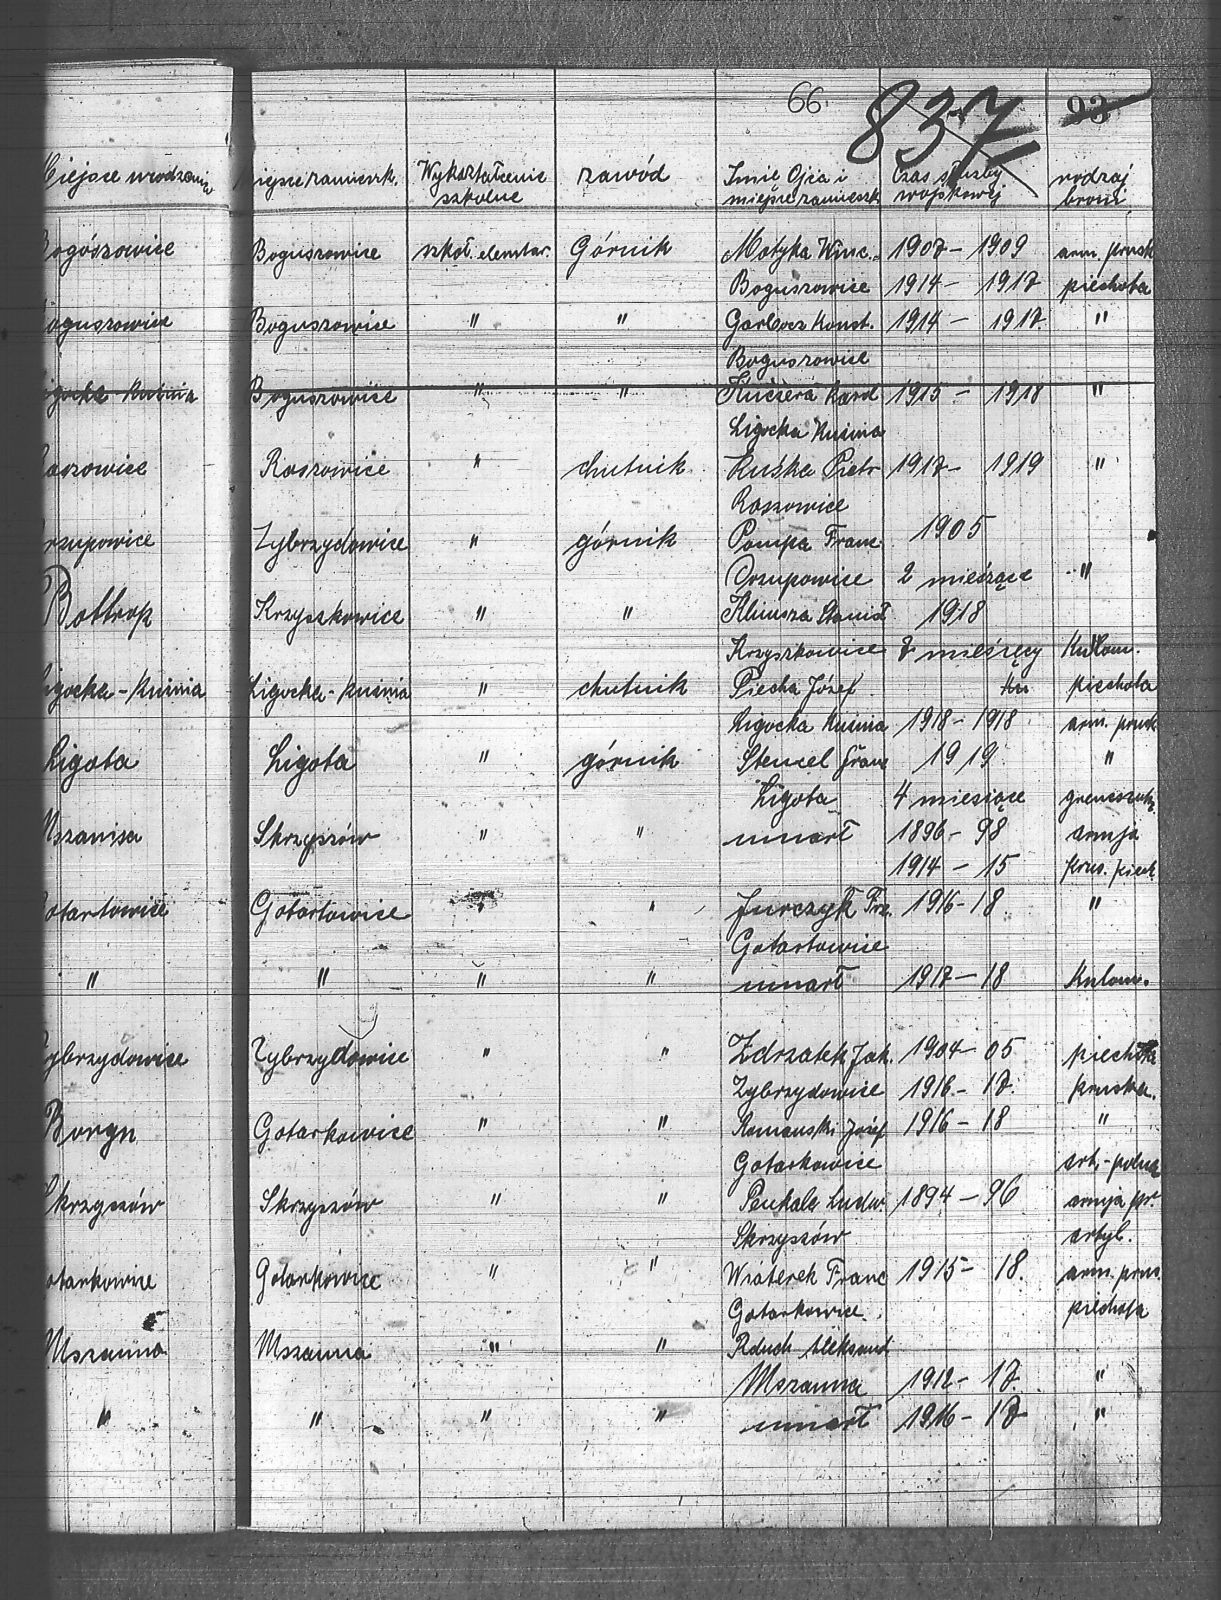 66 837 93
Miejsce urodzenia miejsce zamieszk. Wykształcenie zawód Imie Ojca i Czas służby rodzaj
szkolne miejsce zamieszk wojskowej broni
Bogószowice Boguszowice szkoł. elemtar. Górnik Motyka Winc. 1907 – 1909 arm. prusk
Boguszowice 1914 – 1917 piechota
Boguszowice Boguszowice " " Garbocz Konst. 1914 – 1917 "
Boguszowice
Ligocka-Kuźnia Boguszowice " " Kućera Kard 1915 – 1918 "
Ligocka Kuźnia
Raszowice Roszowice " chutnik Kuśka Pietr 1917 – 1919 "
Roszowice
Orzupowice Zybrzydowice " górnik Pompa Franc. 1905
Orzupowice 2 miesiące "
Bottrop Krzyszkowice " " Klimsza Stanisł 1918
Krzyszkowice 7 mieśięcy Kulom.
Ligocka-Kuźnia Ligocka-Kuźnia " chutnik Piecha Józef piechota
Ligocka Kuźnia 1918 – 1918 arm. prusk
Ligota Ligota " górnik Stencel Franc 1919 "
Ligota 4 miesiące grencszutz
Mszanna Skrzyszów " " umarł 1896 – 98 armja
1914 – 15 prus. piech.
Gotartowice Gotartowice " " Jurczyk Frz. 1916 – 18 "
Gotartowice
" " " " umarł 1917 – 18 Kulom.
Zybrzydowice Zybrzydowice " " Zdrzałek Jak. 1904 – 05 piechota
Zybrzydowice 1916 – 17. pruska.
Boryn Gotarkowice " " Romanski Józef 1916 – 18 "
Gotarkowice art. – polna
Skrzyszów Skrzyszów " " Penkala Ludw. 1894 – 96 armja pr.
Skrzyszów artyl.
Gotarkowice Gotarkowice " " Wiaterek Franc 1915 – 18. arm. prus.
Gotarkowice. piechota
Mszanna Mszanna " " Rduch Aleksand
Mszanna 1912 – 17. "
" " " " umarł 1916 – 17 "